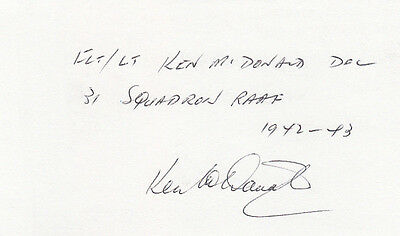 FLT/LT KEN McDONALD DFC
31 SQUADRON RAAF
1942-43
Ken McDonald